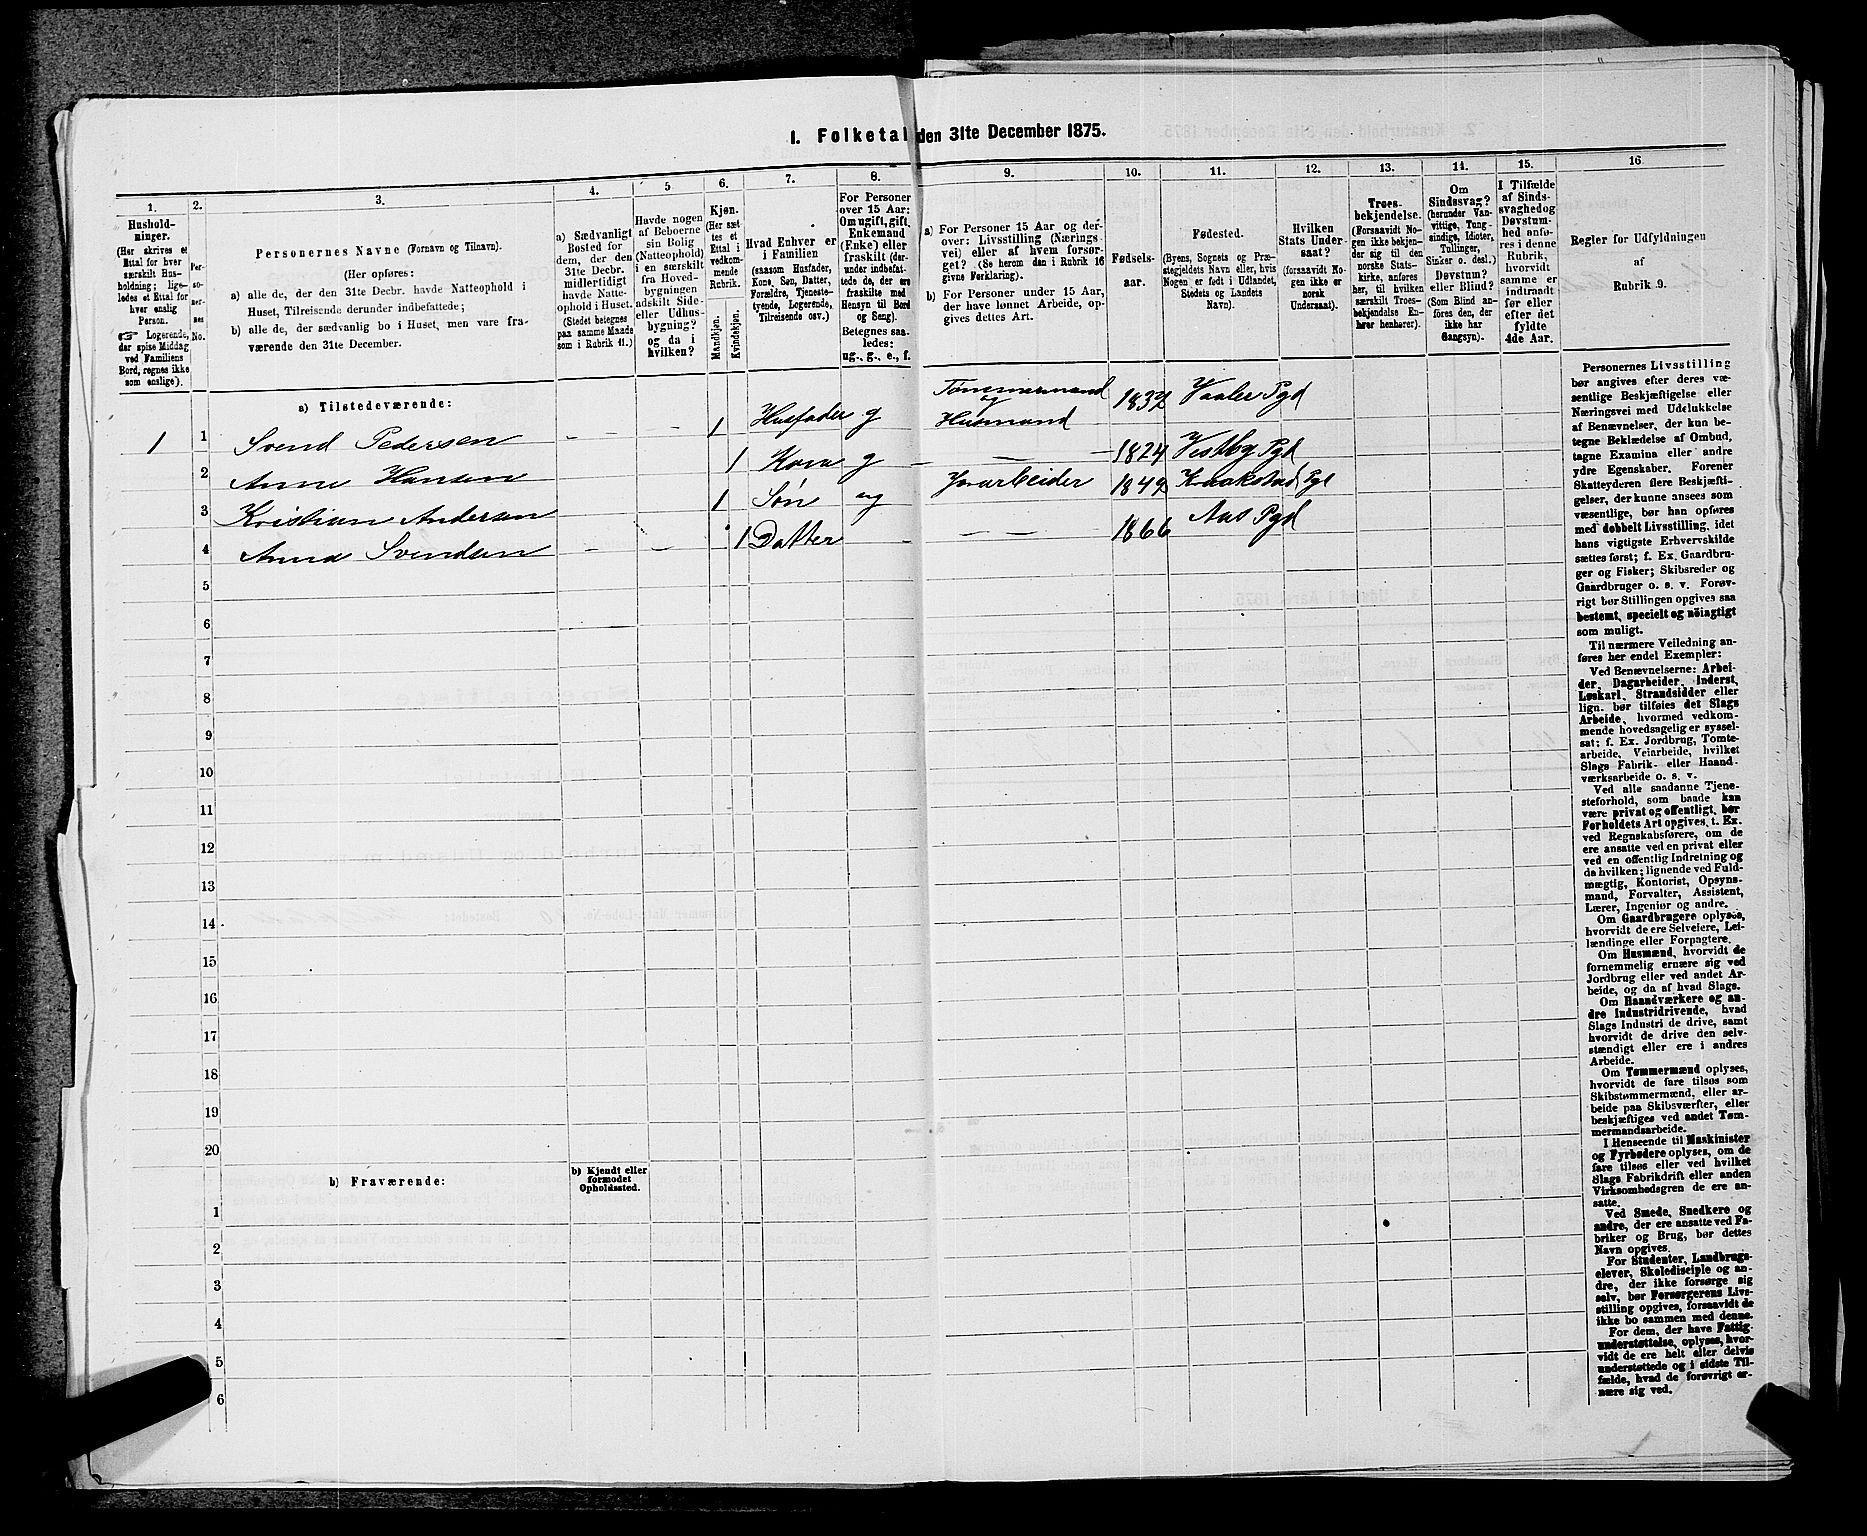 1. Folketal den 31te December 1875.
1.
Hushold-
ninger.
(Her skrives et
Ettal for hver
særskilt Hus-
holdning; lige-
ledes et Ettal for
hver enslig
Person.
☞ Logerende,
der spise Middag
ved Familiens
Bord, regnes ikke
som enslige).
2.
Per-
so-
ner-
nes
No.
3.
Personernes Navne (Fornavn og Tilnavn).
(Her opføres:
a) alle de, der den 31te Decbr. havde Natteophold i
Huset, Tilreisende derunder indbefattede;
b) alle de, der sædvanlig bo i Huset, men vare fra-
værende den 31te December.
4.
a) Sædvanligt
Bosted for
dem, der den
31te Decbr.
midlertidigt
havde Natte-
ophold i Huset.
(Stedet betegnes
paa samme Maade
som i Rubrik 11.)
5
Havde nogen
af Beboerne
sin Bolig
(Natteophold)
i en særskilt
fra Hoved-
bygningen
adskilt Side-
eller Udhus-
bygning?
og da i
hvilken?
6.
Kjøn.
(Her sæt-
tes et
Ettal i
vedkom-
mende
Rubrik.
Mandkjøn.
Kvindekjøn.
7.
Hvad Enhver er
i Familien
(saasom Husfader,
Kone, Søn, Datter,
Forældre, Tjeneste-
tyende, Logerende,
Tilreisende osv.)
8.
For Personer
over 15 Aar:
Om ugift, gift,
Enkemand
(Enke) eller
fraskilt (der-
under indbefat-
tede de, der ere
fraskilte med
Hensyn til Bord
og Seng).
Betegnes saa-
ledes:
ug., g., e., f.
9.
a) For Personer 15 Aar og der-
over: Livsstilling (Nærings-
vei) eller af hvem forsør-
get? (Se herom den i Rubrik 16
givne Forklaring).
b) For Personer under 15 Aar,
der have lønnet Arbeide, op-
gives dettes Art.
10.
Fødsels-
aar.
11.
Fødested.
(Byens, Sognets og Præ-
stegjeldets Navn eller, hvis
Nogen er født i Udlandet,
Stedets og Landets
Navn).
12.
Hvilken
Stats Under-
saat?
(forsaavidt No-
gen ikke er
norsk
Undersaat).
13.
Troes-
bekjendelse.
(Forsaavidt No-
gen ikke bekjen-
der sig til den
norske Stats-
kirke, anføres
her, til hvilken
særskilt Troes-
bekjendelse En-
hver henhører).
14.
Om
Sindssvag?
(herunder Van-
vittige, Tung-
sindige, Idioter,
Tullinger,
Sinker o. desl.)
Døvstum?
eller Blind?
(Som Blind an-
føres den, der
ikke har
Gangsyn).
15.
I Tilfælde
af Sinds-
svaghed og
Døvstum-
hed anfø-
res i denne
Rubrik,
hvorvidt
samme er
indtraadt
før eller
efter det
fyldte
4de Aar.
16
Regler for Udfyldningen
af
Rubrik 9.
a) Tilstedeværende:
1 1 Svend Pedersen - - - - 1 Husfader g Tømmermand og Husmand 1832 Vaaler Pgd
2 Anne Hansen 1 Kone g - - - 1824 Vestby Pgd
3 Kristian Andersen 1 Søn ug Jorarbeider 1849 Kraakstad Pgd
4 Anna Svendsen - - 1 Datter - - - 1866 Aas Pgd
5
6
7
8
9
10
11
12
13
14
15
16
17
18
19
20
b) Fraværende:
b) Kjendt eller
formodet
Opholdssted.
1
2
3
4
5
6
Personernes Livsstilling
bør angives efter deres væ-
sentlige Beskjæftigelse eller
Næringsvei med Udelukkelse
af Benævnelser, der kun be-
tegne Beklædelse af Ombud,
tagne Examina eller andre
ydre Egenskaber. Forener
Skatteyderen flere Beskjæfti-
gelser, der kunne ansees som
væsentlige, bør han opføres
med dobbelt Livsstilling, idet
hans vigtigste Erhvervskilde
sættes først; f. Ex. Gaardbru-
ger og Fisker; Skibsreder og
Gaardbruger o. s. v. Forøv-
rigt bør Stillingen opgives saa
bestemt, specielt og nöiagtigt
som muligt.
Til nærmere Veiledning an-
føres her endel Exempler:
Ved Benævnelserne: Arbei-
der, Dagarbeider, Inderst,
Løskarl, Strandsidder eller
lign. bør tilføies det Slags
Arbeide, hvormed vedkom-
mende hovedsagelig er syssel-
sat; f. Ex. Jordbrug, Tomte-
arbeide, Veiarbeide, hvilket
Slags Fabrik- eller Haand-
værksarbeide o. s. v.
Ved alle saadanne Tjene-
steforhold, som baade kan
være privat og offentligt, bør
Forholdets Art opgives, t. Ex.
ved Regnskabsførere, om de
ere ansatte ved en privat eller
ved en offentlig Indretning og
da hvilken; lignende ved Fuld-
mægtig, Kontorist, Opsyns-
mand, Forvalter, Assistent,
Lærer, Ingeniør og andre.
Om Gaardbrugere oplyses,
hvorvidt de ere Selveiere, Lei-
lændinge eller Forpagtere.
Om Husmænd, hvorvidt de
fornemmelig ernære sig ved
Jordbrug eller ved andet Ar-
beide, og da af hvad Slags.
Om Haandværkere og an-
dre Industridrivende, hvad
Slags Industri de drive, samt
hvorvidt de drive den selv-
stændigt eller ere i andres
Arbeide.
Om Tømmermænd oplyses,
hvorvidt de fare tilsøs som
Skibstømmermænd, eller ar-
beide paa Skibsværfter, eller
beskjæftiges ved andet Tøm-
mermandsarbeide.
I Henseende til Maskinister
og Fyrbödere oplyses, om de
fare tilsøs eller ved hvilket
Slags Fabrikdrift eller anden
Virksomhedsgren de ere an-
satte.
Ved Smede, Snedkere og
andre, der ere ansatte ved Fa-
briker og Brug, bør dettes
Navn opgives.
For Studenter, Landbrugs-
elever, Skoledisciple og an-
dre, der ikke forsørge sig
selv, bør Forsørgerens Livs-
stilling opgives, forsaavidt de
ikke bo sammen med denne.
For dem, der have Fattig-
understøttelse, oplyses, hvor-
vidt de ere helt eller delvis
understøttede og i sidste Til-
fælde, hvad de forøvrigt er-
nære sig ved.